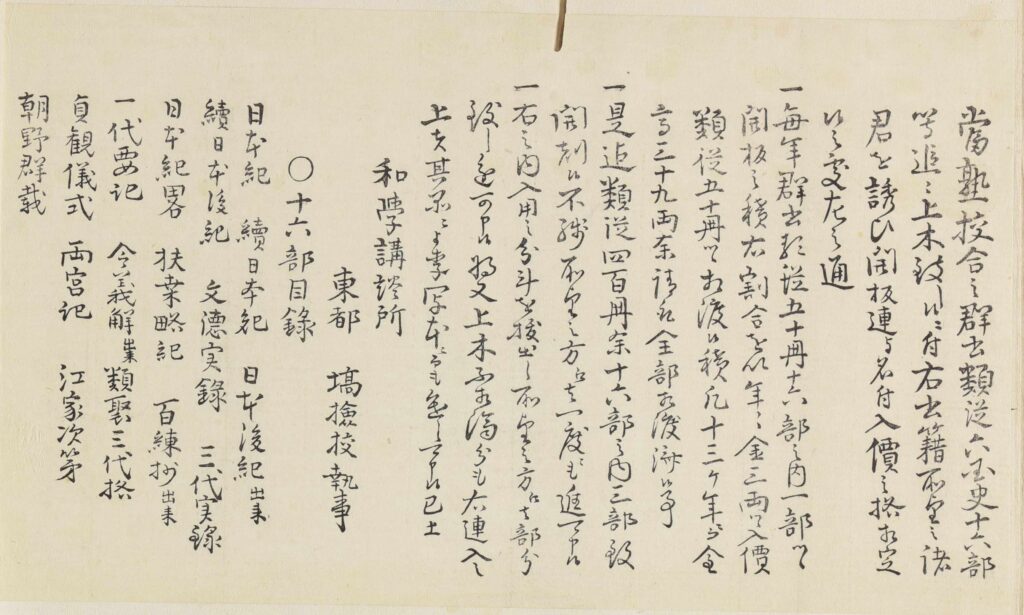 當塾校合之群書類従六国史十六部
等追々上木致候ニ付右書籍所望之諸
君を誘ひ開板連与名付入價之格相定
候処左之通
一毎年群書類従五十冊十六部之内一部ツヽ
開板之積右割合を以年々金三両ツヽ入價
類従五十冊ツヽ相渡候積凡十三ケ年ニ而金
高三十九両ニ而
全部相渡済候事
一是迄類従四百冊余十六部之内三部致
開刻候不残所望之方江者一度ニも進可申候
一右之内入用之分斗を抜出し所望之方江者部分
致し遣可申候将又上木不相済分も右連入之
上者其品ニより書写本ニ而も
可申候已上
和學講談所
東都 塙撿挍執事
〇十六部目録
日本紀 續日本紀 日本後紀出来
續日本後紀 文徳実錄 三代実錄
日本紀畧 扶桒略紀 百練抄出来
一代要記 令義解出来 類聚三代挌
貞観儀式 両宮記 江家次第
朝野群載